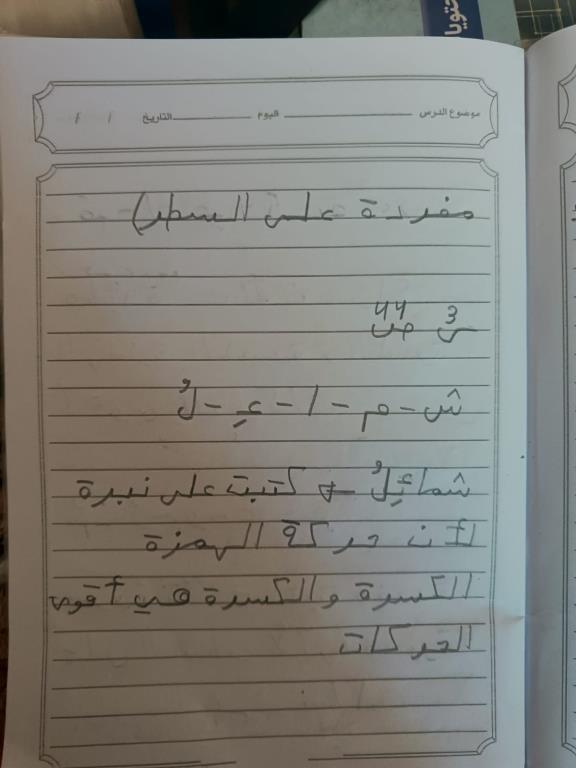 محتويا
موضوع الدرس اليوم التاريخ / /
مفردة على السطر)
س3 ص44
ش - م - ا - ءِ - لُ
شمائِلُ ← كتبت على نبرة
لأن حركة الهمزة
الكسرة والكسرة هي أقوى
الحركات